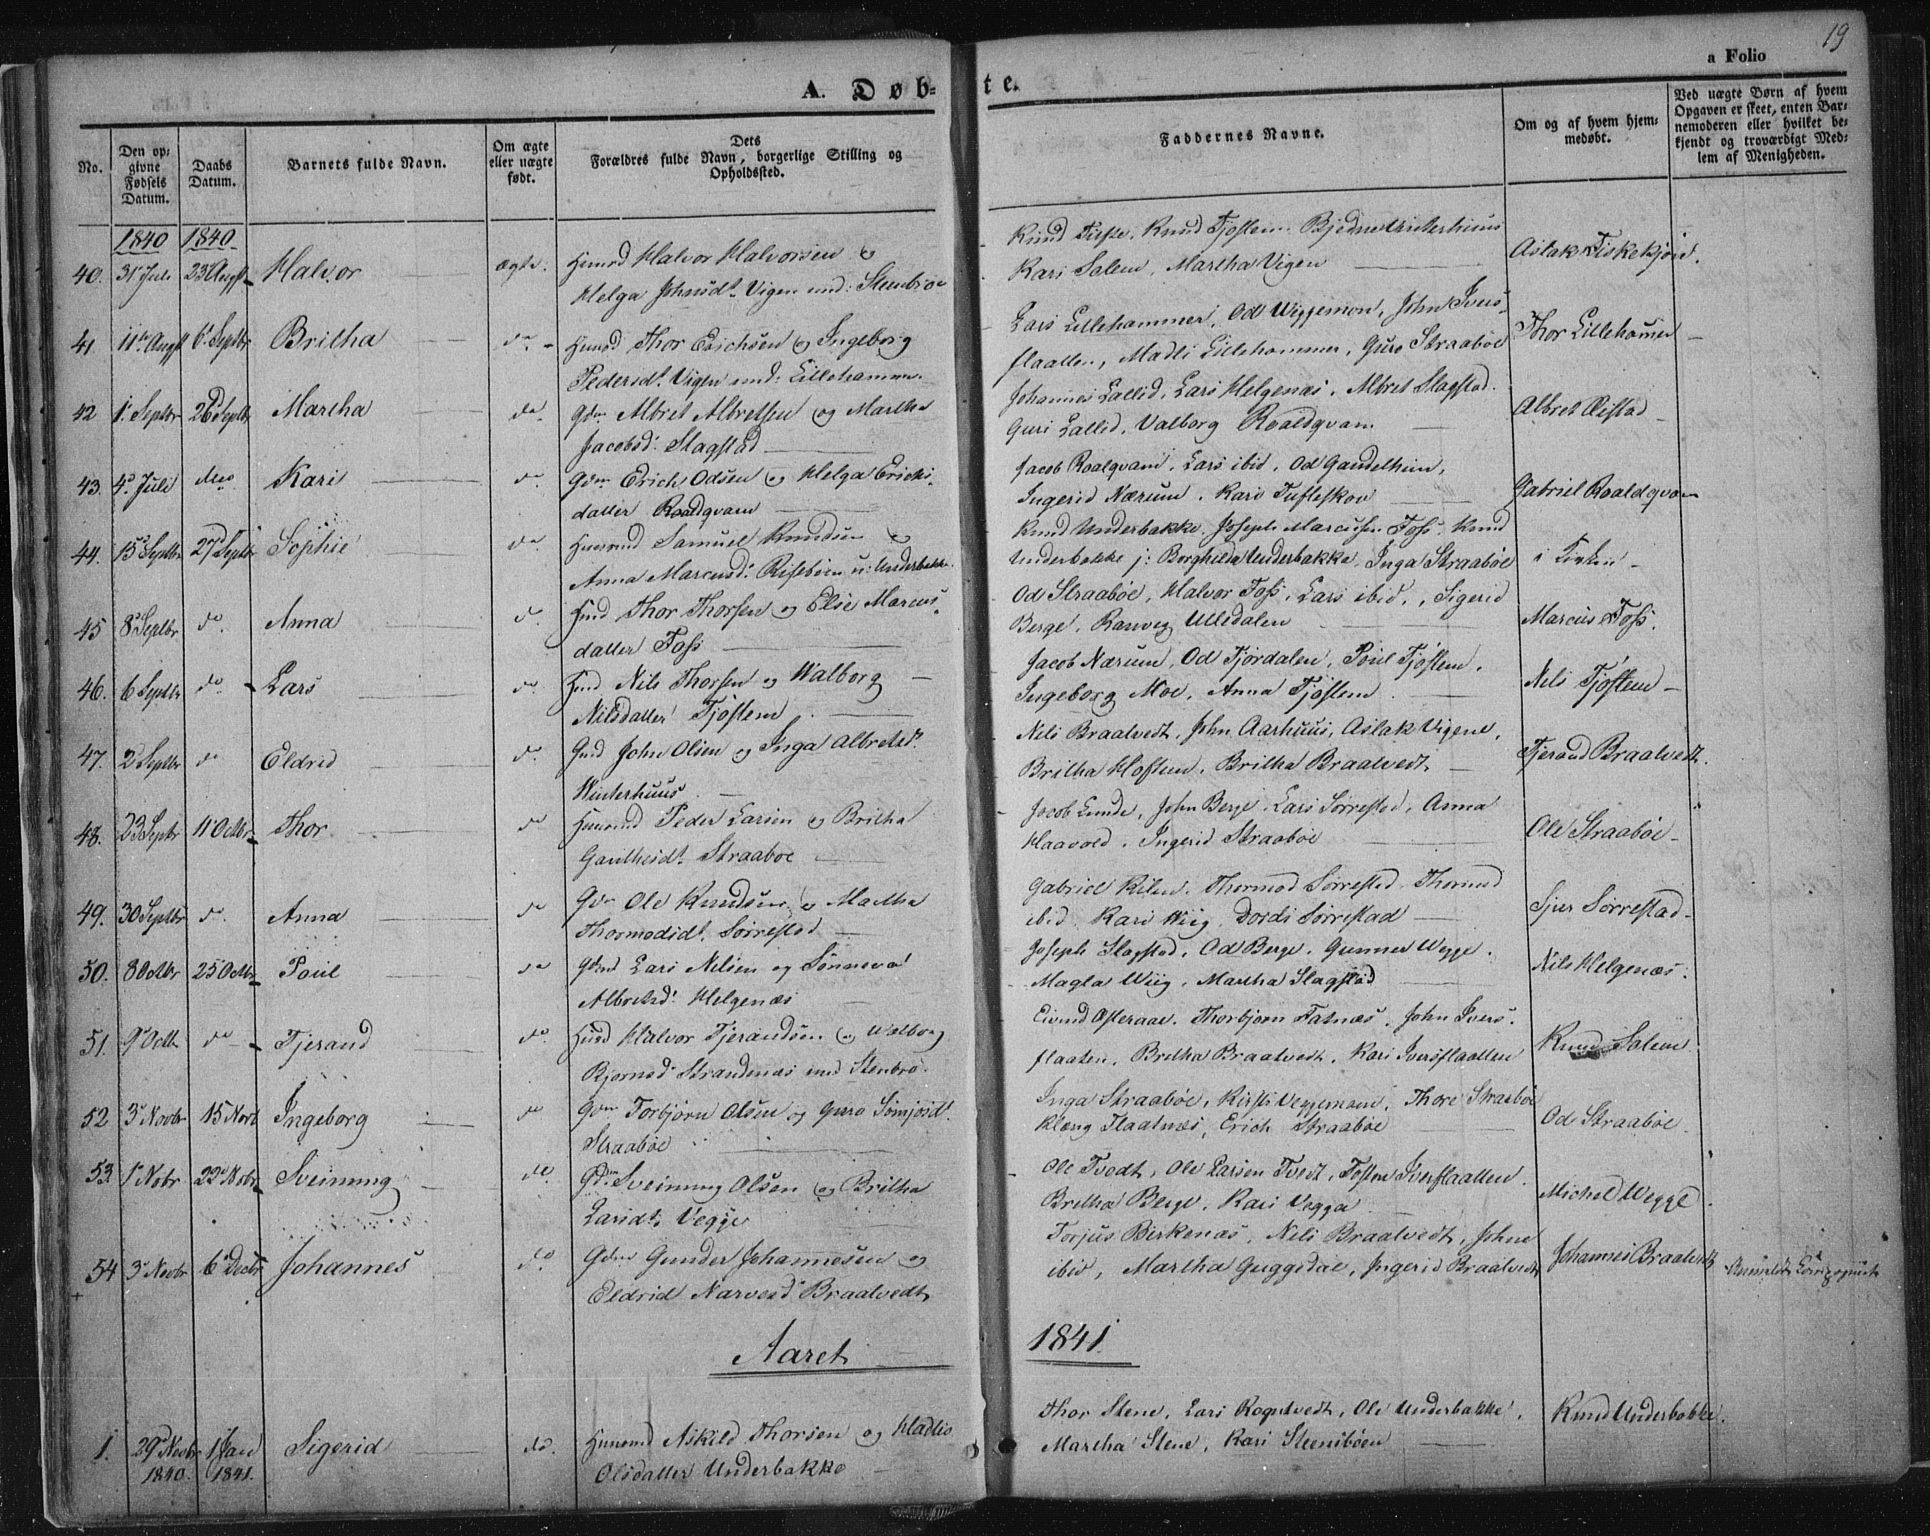 19
a Folio
A. Døb-
te.
No.
Den op-
givne
Fødsels
Datum.
Daabs
Datum.
Barnets fulde Navn.
Om ægte
eller uægte
født.
Dets
Forældres fulde Navn, borgerlige Stilling og
Opholdssted.
Faddernes Navne.
Om og af hvem hjem-
medøbt.
Ved uægte Børn af hvem
Opgaven er skeet, enten Bar-
nemoderen eller hvilket be-
kjendt og troværdigt Med-
lem af Menigheden.
1840 1840
40. 31 Juli 23 Augst Halvor ægte. Huusmd Halvor Halvorsen og
Helga Johnsdt. Vigen und: Steenbroe
Knud Fiske. Knud Tjøstem. Bjedne Winterhuus
Kari Salem, Martha Vigen
Aslak Fiskekjøn.
41. 11te Augst 6t Septbr Britha do. Huusmd Thor Erichsen og Ingeborg
Pedersdt. Vigen und: Lillehammer
Lars Lillehammer, Od Wiggemon, John Ivers-
flaatten, Madli Lillehammer, Guro Straabøe
Thor Lillehamer
42 1t Septbr 26 Septbr Martha do. Gdm Albret Albretsen og Martha
Jacobsd. Slagstad
Johannes Lallid, Lars Helgenæs, Albret Slagstad.
Guri Lallid, Valborg Roaldqvam
Albret Øistad
43. 4d Juli Kari do. Gdm Erich Odsen og Helga Erichs-
datter Roaldqvam
Jacob Roalqvam, Lars ibid, Od Gandelhiim,
Ingerid Nærum, Kari Tufteskou
Gabriel Roaldqvam
44. 15d Septbr 27d Septbr Sophie do. Huusmd Samuel Knudsen og
Anna Marcusd. Risebøen u: Underbakke.
Knud Underbakke, Joseph Marcussen Foss. Knud
Underbakke j: Borghilda Underbakke, Inga Straabøe
i Kirken
45 8d Septbr do. Anna do. Hmd Thor Thorsen og Elsie Marcus-
datter Foss
Od Straabøe, Halvor Foss, Lars ibid, Sigerid
Berge, Ranveg Ulledalen
Marcus Foss.
46. 6 Septbr do. Lars do. Hmd Nils Thorsen og Walborg
Nilsdatter Tjøstem
Jacob Nærum, Od Fjordalen, Poul Tjøstem,
Ingeborg Moe, Anna Tjøstem
Nils Tjøstem
47. 2 Septbr do Eldrid do. Gmd John Olsen og Inga Albretsdt.
Winterhuus
Nils Braatvedt, John Aarhuus, Aslak Vigene,
Britha Hoftun, Britha Braatvedt
Tjerand Braatvedt.
48. 23 Septr 11 Octbr Thor do Huusmd Peder Larsen og Britha
Gauthesdt. Straabøe
Jacob Lunde, John Berge, Lars Sørrestad, Anna
Haavold, Ingerid Straabøe
Ole Straabøe
49. 30 Septbr do. Anna do Gdm Ole Knudsen og Martha
Thormodsdt. Sørrestad
Gabriel Rilen. Thormod Sørrestad. Thormod
ibid, Kari Wiig, Dordi Sørrestad
Sjur Sørrestad
50. 8 Octbr 25 Octbr Poul do Gmd Lars Nilsen og Sønneva
Albretsd. Helgenæs
Joseph Slagstad, Od Berge, Gunner Wegge.
Magla Wiig, Martha Slagstad
Nils Helgenæs.
51. 9d Octb. do Tjerand do. Husmd Halvor Tjerandsen og Walborg
Bjornsd. Strandenæs und Stenbro.
Eivind Østeraae. Thorbjørn Fatnæs. John Ivers-
flaaten, Britha Braatvedt, Kari Iversflaatten
Knud Salem
52 3d Novbr 15 Novb Ingeborg do Gdm Torbjørn Olsen og Guro Simjosdt.
Straabøe
Inga Straabøe, Kirsti Veggemoen, Thore Straabøe
Klæng Flaatnæs, Erich Straabøe
Od Straabøe
53. 1t Nobr 22 Nobr Sveinung do. Gdm Sveinung Olsen og Britha
Larsdt. Vegge
Ole Tvedt, Ole Larsen Tvedt, Tosten Iversflaatten.
Britha Berge, Kari Vegga
Michel Wegge.
54 3d Novbr 6 Decbr Johannes do. Gdm Gunder Johannesen og
Eldrid Narvesd. Braatvedt
Torjus Birkenæs, Nils Braatvedt, John
ibid, Martha Guggedal, Ingerid Braatvedt
Johannes Braatvedt
Aaret
1841.
1. 29d Novbr
1840. 1 Jan
1841. Sigerid do. Huusmd Askild Thorsen og Madlis
Olsdatter Underbakke
Thor Stene, Lars Rognetvedt, Ole Underbakke,
Martha Stene, Kari Steensbøen
Knud Underbakke.